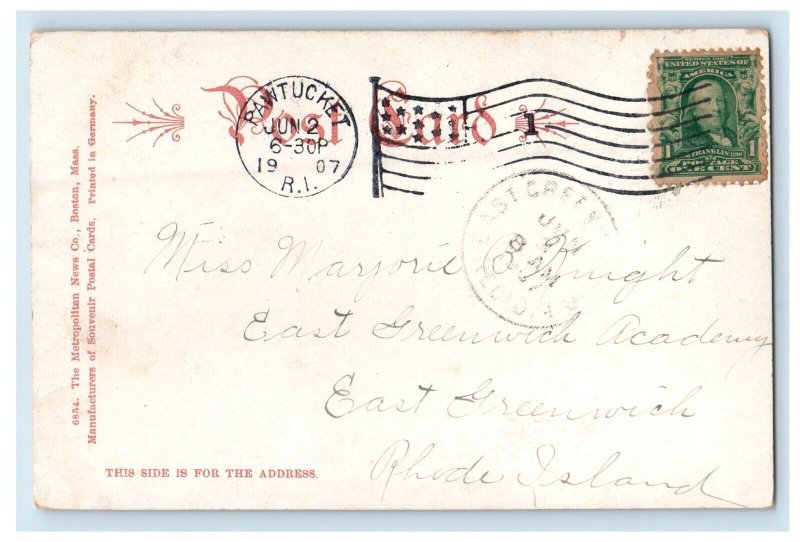 Post Card
PAWTUCKET
JUN 2
6-30P
19 07
R.I.
1
SERIES 1902
UNITED STATES OF
AMERICA
FRANKLIN
POSTAGE
1 1
ONE CENT
EAST GREEN
JUN
AM
Miss Marjorie Knight
East Greenwich Academy
East Greenwich
Rhode Island
6854. The Metropolitan News Co., Boston, Mass.
Manufacturers of Souvenir Postal Cards. Printed in Germany.
THIS SIDE IS FOR THE ADDRESS.